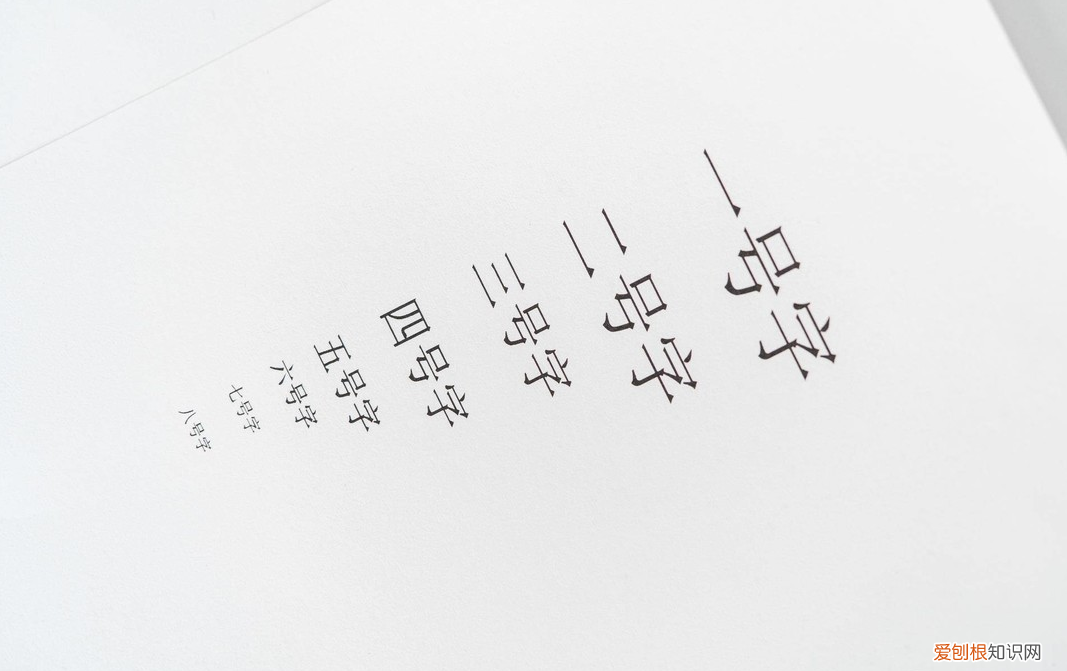 一号字
二号字
三号字
四号字
五号字
六号字
七号字
八号字
爱刨根知识网